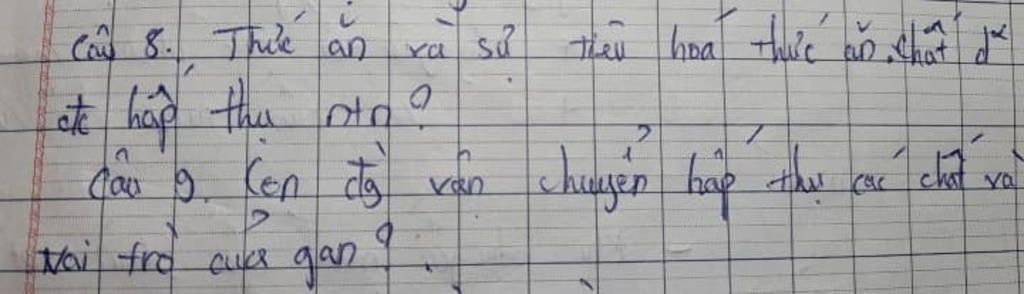 Câu 8. Thức ăn và sự tiêu hoá thức ăn. Chất d²
đc hấp thụ ntn?
Câu 9. Con đg vận chuyển hấp thụ các chất và
vai trò của gan?